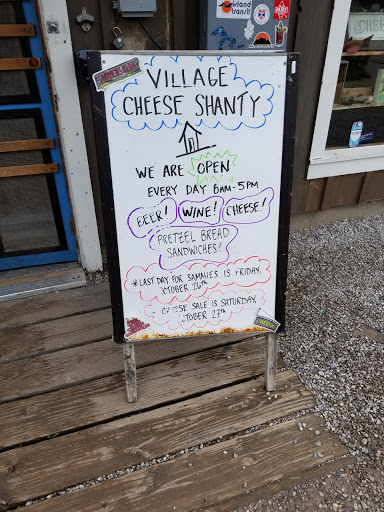 VILLAGE
CHEESE SHANTY
WE ARE OPEN
EVERY DAY 8AM-5PM
BEER! WINE! CHEESE!
PRETZEL BREAD
SANDWICHES!
*LAST DAY FOR SAMMIES IS FRIDAY,
CTOBER 26th
SE SALE IS SATURDAY,
CTOBER 27th
transit
CHEESE